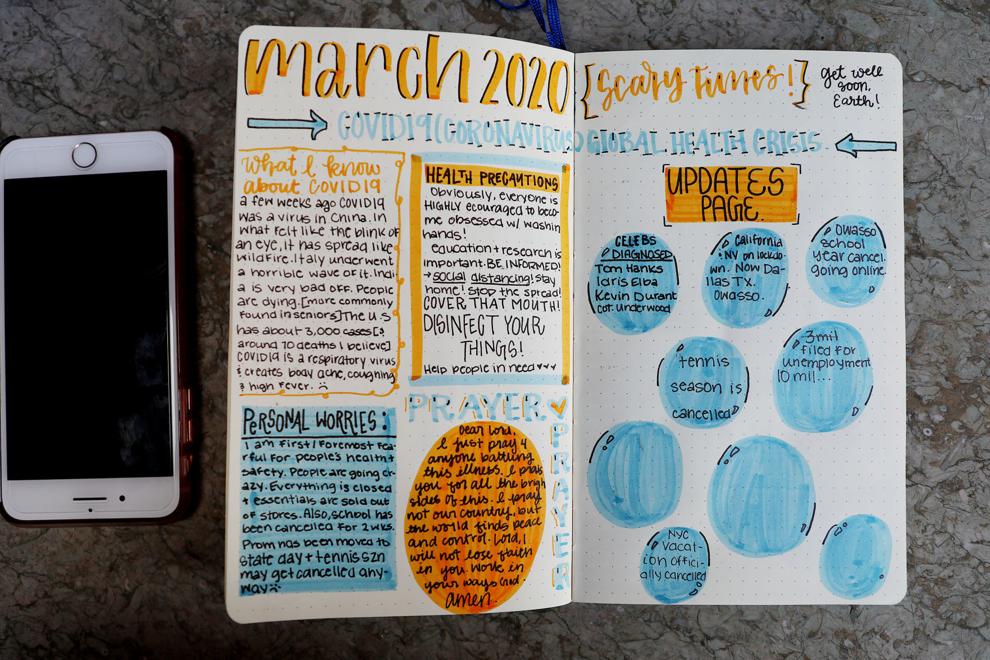 march 2020
[Scary Times!]
get well
soon,
Earth!
COVID19(CORONAVIRUS) GLOBAL HEALTH CRISIS
what I know
about COVID19
a few weeks ago COVID19
was a virus in China. In
what felt like the blink of
an eye, it has spread like
wildfire. Italy underwent
a horrible wave of it. Indi-
a is very bad off. People
are dying. [more commonly
found in seniors] The U.S
has about 3,000 cases [&
around 70 deaths I believe]
COVID19 is a respiratory virus
& creates body ache, coughing
& high fever.
HEALTH PRECAUTIONS
Obviously, everyone is
HIGHLY ecouraged to beco-
me obsessed w/ washin
hands!
education + research is
important. BE INFORMED!
→ social distancing! Stay
home! Stop the spread!
COVER THAT MOUTH!
DISINFECT YOUR
THINGS!
Help people in need ♥♥♥
PERSONAL WORRIES:
I am First/Foremost fea
rful for people's health +
safety. People are going cr-
azy. Everything is closed
+ essentials are sold out
of stores. Also, school has
been cancelled for 2 wks.
Prom has been moved to
state day + tennis szn
may get cancelled any-
way
PRAYER
PRAYER
Dear Lord,
I just pray 4
anyone battling
this illness. I praise
you for all the brigh
sides of this. I pray
not our country, but
the world finds peace
and control. Lord, I
will not lose faith
in you. Work in
your ways God.
amen.
UPDATES
PAGE.
CELEBS
DIAGNOSED
Tom Hanks
Idris Elba
Kevin Durant
Car. Underwood
California
& NY on lockdo-
wn. Now Da-
llas TX.
Owasso.
Owasso
school
year cancel.
going online.
tennis
season is
cancelled
3mil
filed for
unemployment
10 mil...
NYC
Vacat-
ion offici-
ally cancelled